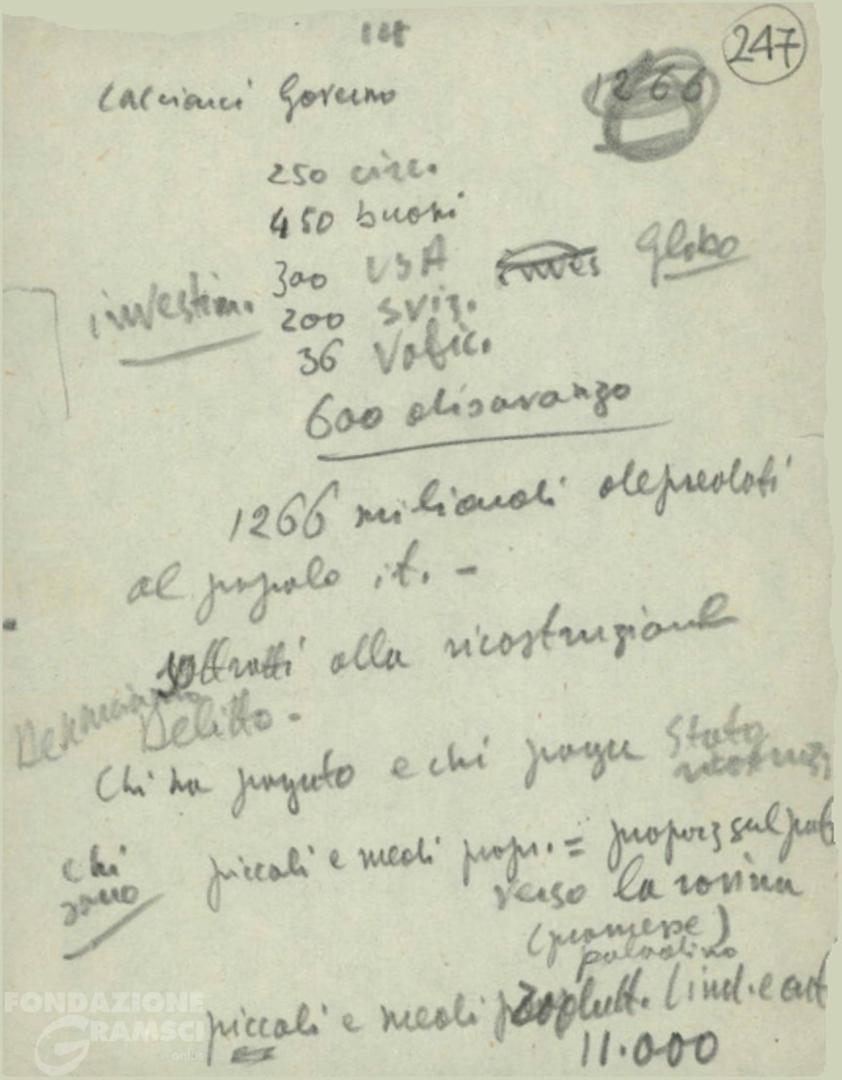 247
1266
Governo
250 circ.
450 buoni
300 USA inves Globo
investim.
200 sviz.
36 Vatic.
600 disavanzo
1266 miliardi depredati
al popolo it. -
sottratti alla ricostruzione
Denunciamo
Delitto -
Chi ha pagato e chi paga Stato
chi
sono
piccoli e medi propr. = proporz sul
verso la rovina
(promesse)
paladino
piccoli e medi (ind. e art
11.000
FONDAZIONE
GRAMSCI
onlus